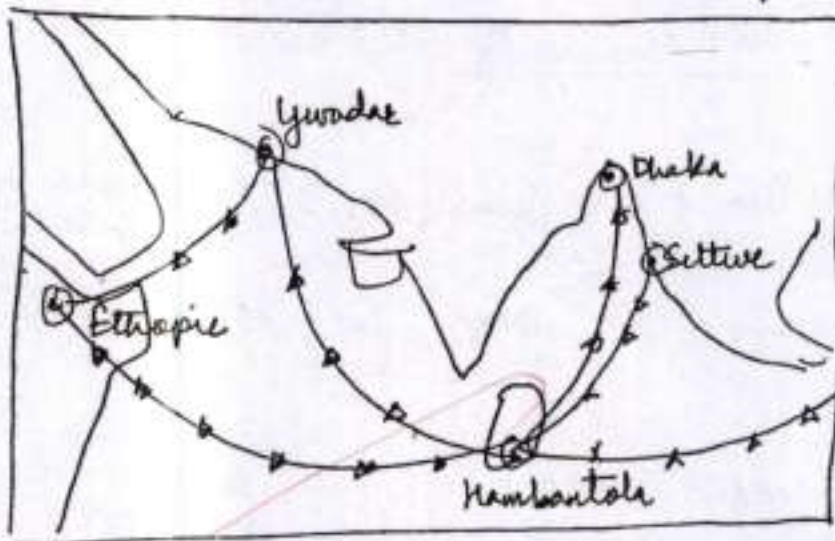 Gwadar
Dhaka
Sittwe
Ethiopia
Hambantola